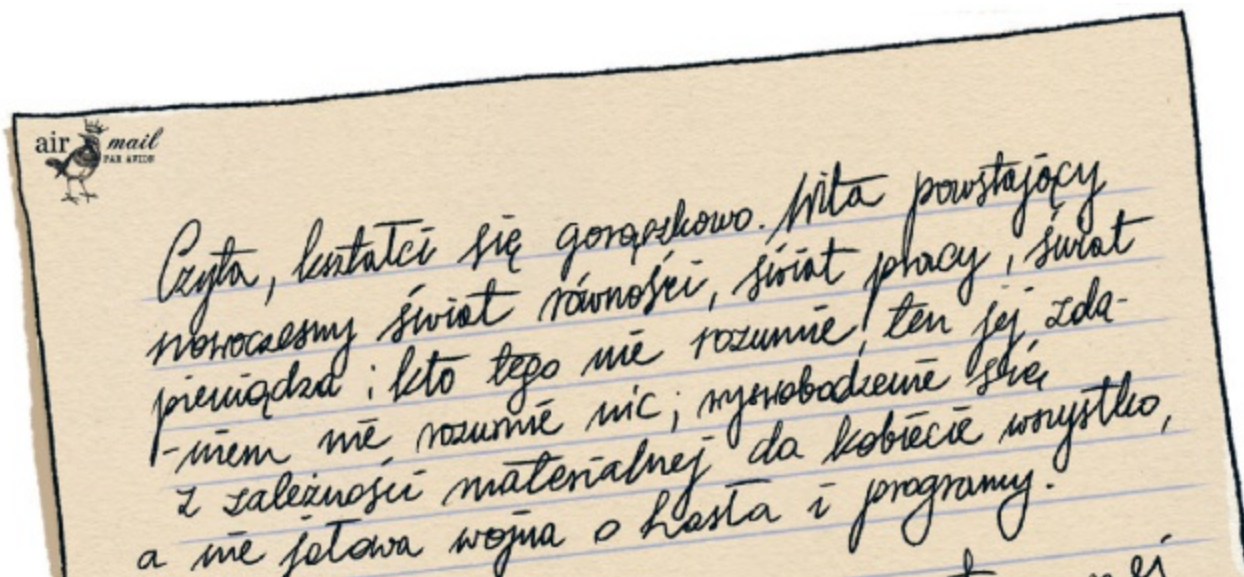 air mail
PAR AVION
Czyta, kształci się gorączkowo. Wita powstający
nowoczesny świat równości, świat pracy, świat
pieniądza; kto tego nie rozumie, ten jej zda-
-niem nie rozumie nic; wyswobodzenie się
z zależności materialnej da kobiecie wszystko,
a nie jałowa wojna o hasła i programy.